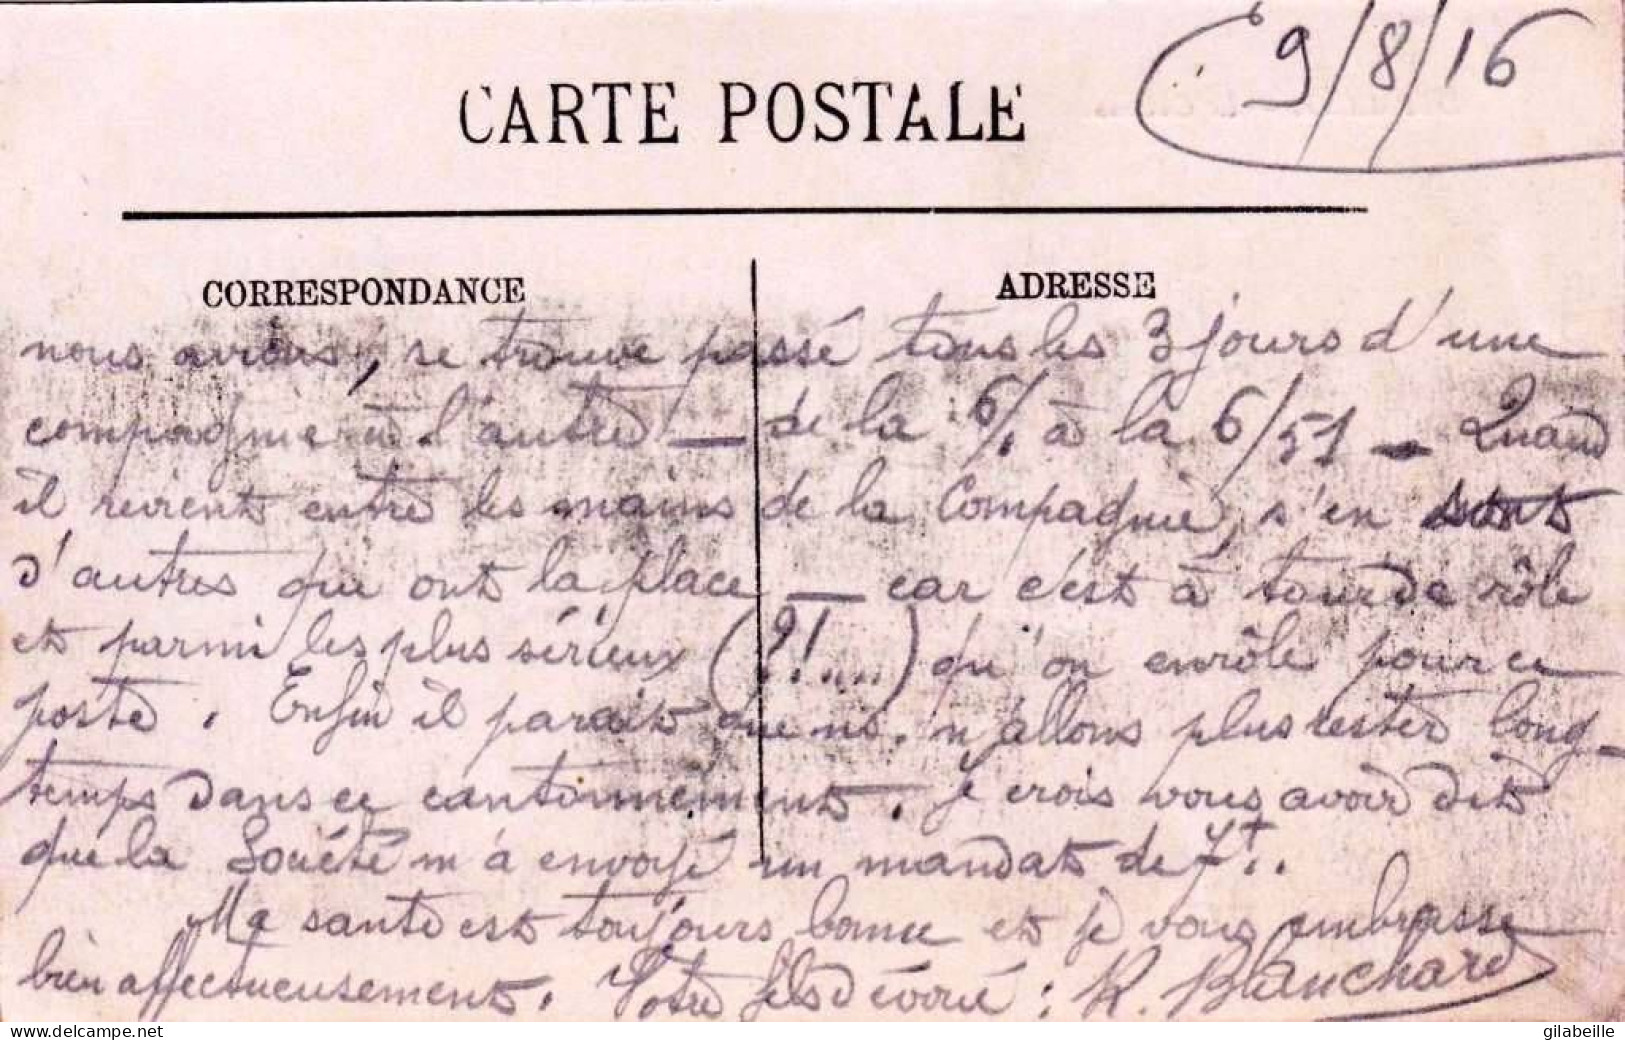 9/8/16
CARTE POSTALE
CORRESPONDANCE
ADRESSE
nous avions, se trouve passé tous les 3 jours d'une
compagnie à l'autre — de la 6/. à la 6/51 — Quand
il revient entre les mains de la Compagnie, s'en sont
d'autres qui ont la place — car c'est à tour de rôle
et parmi les plus sérieux (?!...) qu'on enrôle pour ce
poste. Enfin il parait que ns. n'allons plus rester long-
temps dans ce cantonnement. Je crois vous avoir dit
que la Société m'a envoyé un mandat de 7f..
Ma santé est toujours bonne et je vous embrasse
bien affectueusement. Votre fils dévoué : R. Blanchard
www.delcampe.net
gilabeille